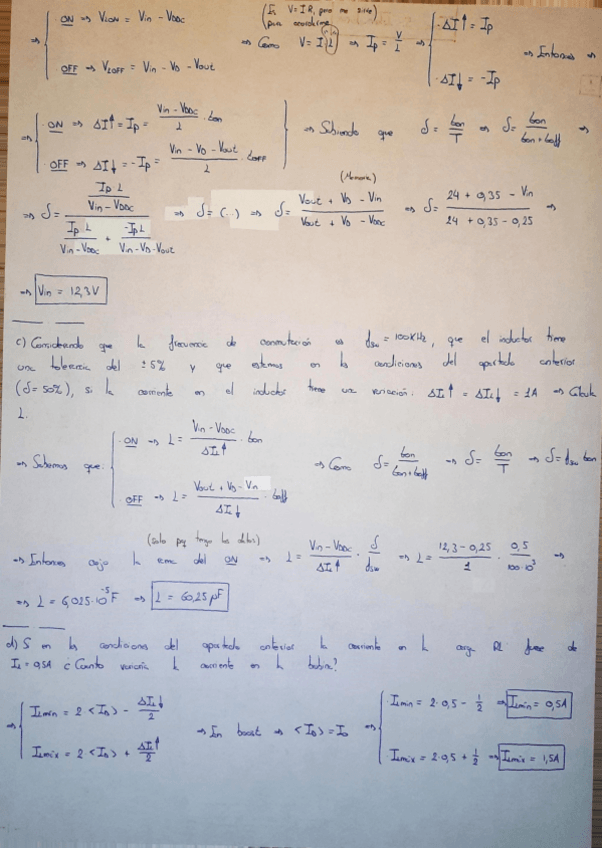 (En V=I·R, pero me sirve
para acordarme)
⇒ { ON ⇒ VLON = Vin − VDDC
OFF ⇒ VLOFF = Vin − VD − Vout
⇒ Como V = I·L ⇒ Ip = V/L ⇒ { ΔI↑ = Ip
ΔI↓ = −Ip
⇒ Entonces ⇒
⇒ { · ON ⇒ ΔI↑ = Ip = (Vin − VDDC)/L · ton
· OFF ⇒ ΔI↓ = −Ip = (Vin − VD − Vout)/L · toff
⇒ Sabiendo que δ = ton/T ⇒ δ = ton/(ton + toff) ⇒
(Memoria)
⇒ δ = (Ip·L/(Vin − VDDC)) / (Ip·L/(Vin − VDDC) + −Ip·L/(Vin − VD − Vout)) ⇒ δ = (...) ⇒ δ = (Vout + VD − Vin)/(Vout + VD − VDDC) ⇒ δ = (24 + 0,35 − Vin)/(24 + 0,35 − 0,25) ⇒
⇒ Vin = 12,3V
c) Considerando que la frecuencia de conmutación es fsw = 100KHz, que el inductor tiene
una tolerancia del ±5% y que estamos en las condiciones del apartado anterior
(δ = 50%), si la corriente en el inductor tiene una variación: ΔIL↑ = ΔIL↓ = 1A ⇒ Calcula
L.
⇒ Sabemos que: { · ON ⇒ L = (Vin − VDDC)/ΔIL↑ · ton
OFF ⇒ L = (Vout + VD − Vin)/ΔIL↓ · toff
⇒ Como δ = ton/(ton + toff) ⇒ δ = ton/T ⇒ δ = fsw·ton
(solo porq tengo los datos)
⇒ Entonces cojo la rama del ON ⇒ L = (Vin − VDDC)/ΔIL↑ · δ/fsw ⇒ L = (12,3 − 0,25)/1 · 0,5/100·10³ ⇒
⇒ L = 6,025·10⁻⁵F ⇒ L = 60,25 μF
d) Si en las condiciones del apartado anterior la corriente en la carga RL fuese de
IL = 0,5A ¿Cuanto variaría la corriente en la bobina?
⇒ { ILmin = 2·<ID> − ΔIL↓/2
ILmáx = 2·<ID> + ΔIL↑/2
⇒ En boost ⇒ <ID> = Io ⇒ { ILmin = 2·0,5 − 1/2 ⇒ ILmin = 0,5A
ILmáx = 2·0,5 + 1/2 ⇒ ILmáx = 1,5A